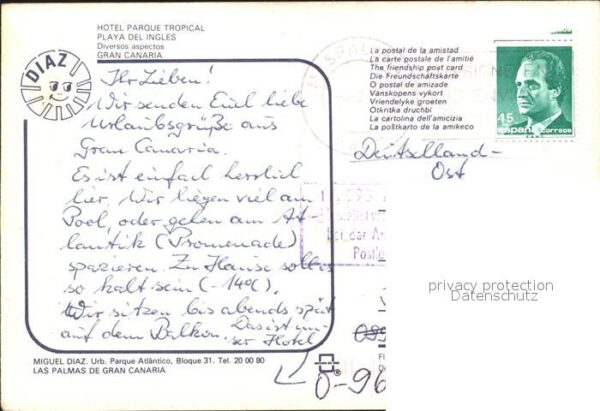 HOTEL PARQUE TROPICAL
PLAYA DEL INGLES
Diversos aspectos
GRAN CANARIA
DIAZ
Ihr Lieben!
Wir senden Euch liebe
Urlaubsgrüße aus
Gran Canaria.
Es ist einfach herrlich
hier. Wir liegen viel am
Pool, oder gehen am At-
lantik (Promenade)
spazieren. Zu Hause soll es
so kalt sein (-14°C).
Wir sitzen bis abends spät
auf dem Balkon. Das ist un-
ser Hotel
MIGUEL DIAZ. Urb. Parque Atlántico, Bloque 31. Tel. 20 00 80
LAS PALMAS DE GRAN CANARIA
La postal de la amistad
La carte postale de l'amitié
The friendship post card
Die Freundschaftskarte
O postal de amizade
Vanskopens vykort
Vriendelyke groeten
Otkritka druchbi
La cartolina dell'amicizia
La poŝtkarto de la amikeco
45
españa correos
Deutschland-
Ost
bei der A
Post
privacy protection
Datenschutz
O-96